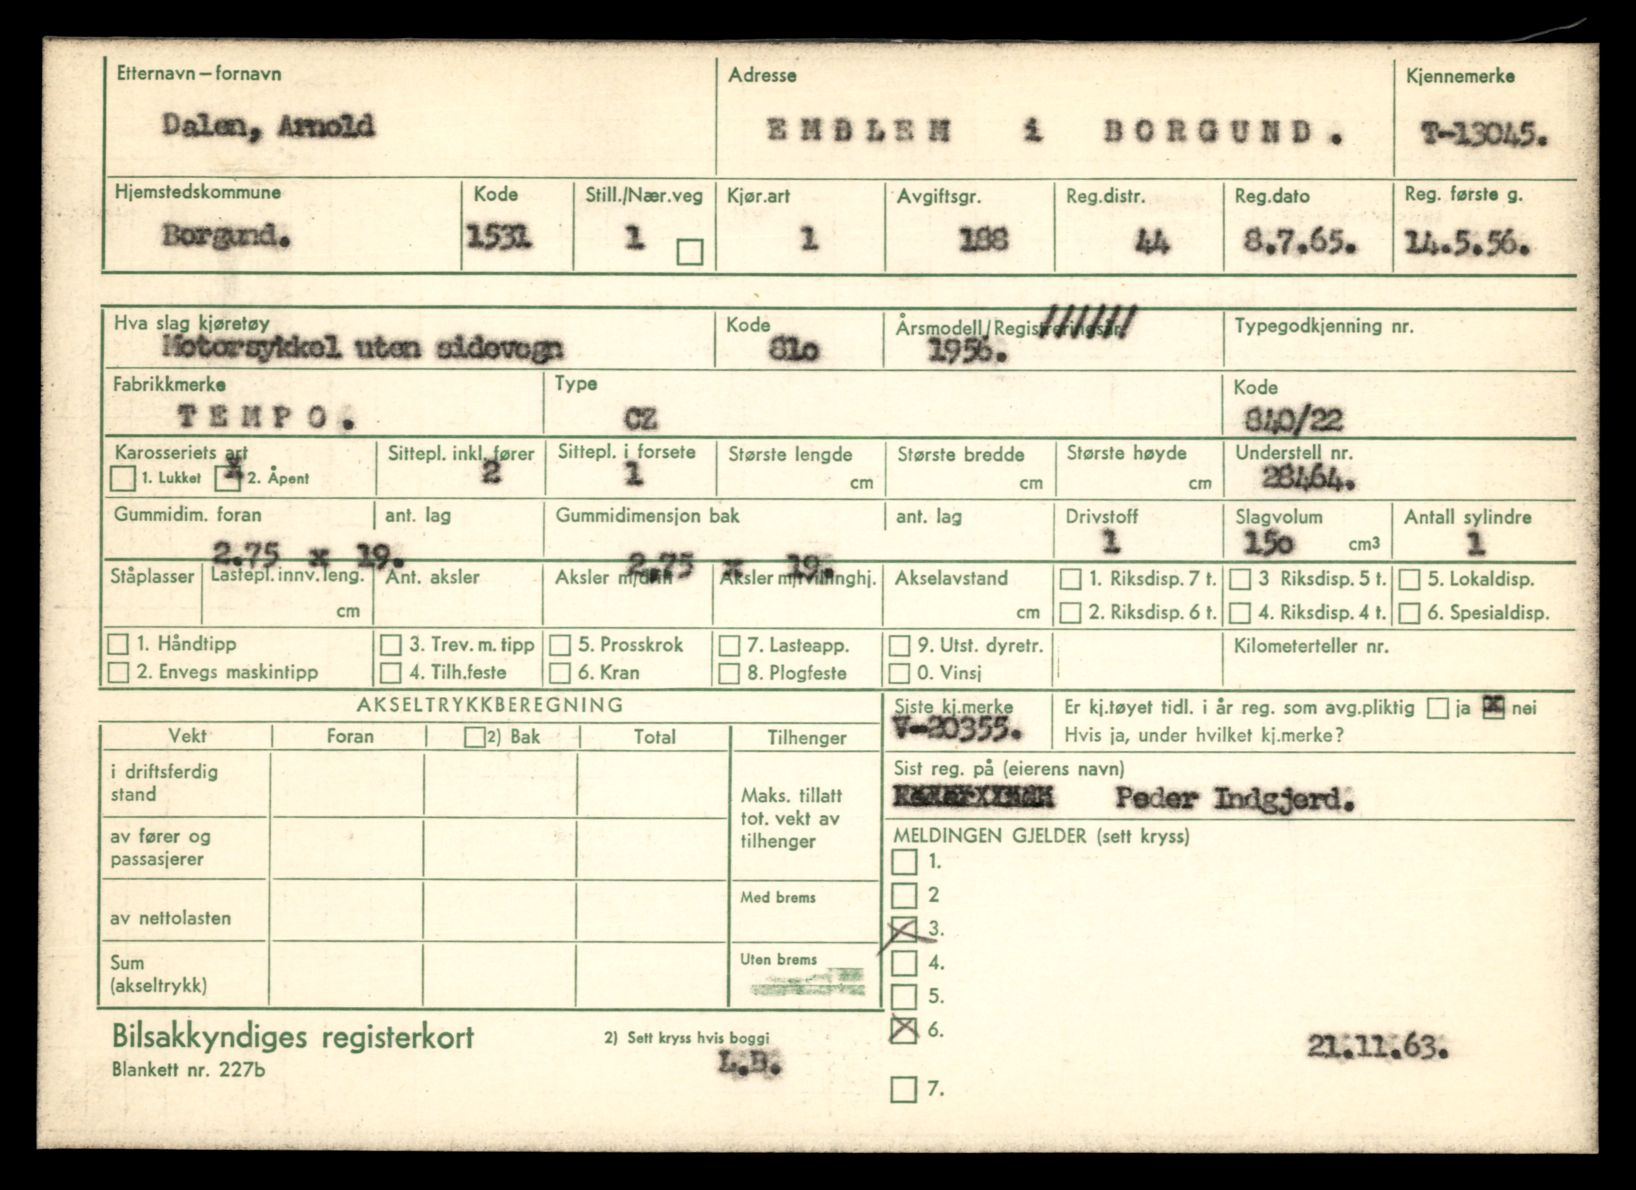 Etternavn – fornavn Adresse Kjennemerke
Dalen, Arnold EMBLEM i BORGUND. T-13045.
Hjemstedskommune Kode Still./Nær.veg Kjør.art Avgiftsgr. Reg.distr. Reg.dato Reg. første g.
Borgund. 1531 1 1 188 44 8.7.65. 14.5.56.
Hva slag kjøretøy Kode Årsmodell/Registreringsår Typegodkjenning nr.
Motorsykkel uten sidevogn 81o 1956.
Fabrikkmerke Type Kode
TEMPO. CZ 840/22
Karosseriets art Sittepl. inkl. fører Sittepl. i forsete Største lengde Største bredde Største høyde Understell nr.
1. Lukket x 2. Åpent 2 1 cm cm cm 28464.
Gummidim. foran ant. lag Gummidimensjon bak ant. lag Drivstoff Slagvolum Antall sylindre
2.75 x 19. 2.75 x 19. 1 15o cm3 1
Ståplasser Lastepl. innv. leng. Ant. aksler Aksler m/drift Aksler m/tvillinghj. Akselavstand 1. Riksdisp. 7 t. 3 Riksdisp. 5 t. 5. Lokaldisp.
cm cm 2. Riksdisp. 6 t. 4. Riksdisp. 4 t. 6. Spesialdisp.
1. Håndtipp 3. Trev. m. tipp 5. Prosskrok 7. Lasteapp. 9. Utst. dyretr. Kilometerteller nr.
2. Envegs maskintipp 4. Tilh.feste 6. Kran 8. Plogfeste 0. Vinsj
AKSELTRYKKBEREGNING Siste kj.merke Er kj.tøyet tidl. i år reg. som avg.pliktig ja x nei
V-20355. Hvis ja, under hvilket kj.merke?
Vekt Foran 2) Bak Total Tilhenger
i driftsferdig Sist reg. på (eierens navn)
stand Maks. tillatt Peder Indgjerd.
tot. vekt av
av fører og tilhenger MELDINGEN GJELDER (sett kryss)
passasjerer 1.
Med brems 2
av nettolasten 3.
Sum Uten brems 4.
(akseltrykk) 5.
Bilsakkyndiges registerkort 2) Sett kryss hvis boggi 6. 21.11.63.
Blankett nr. 227b L.B.
7.